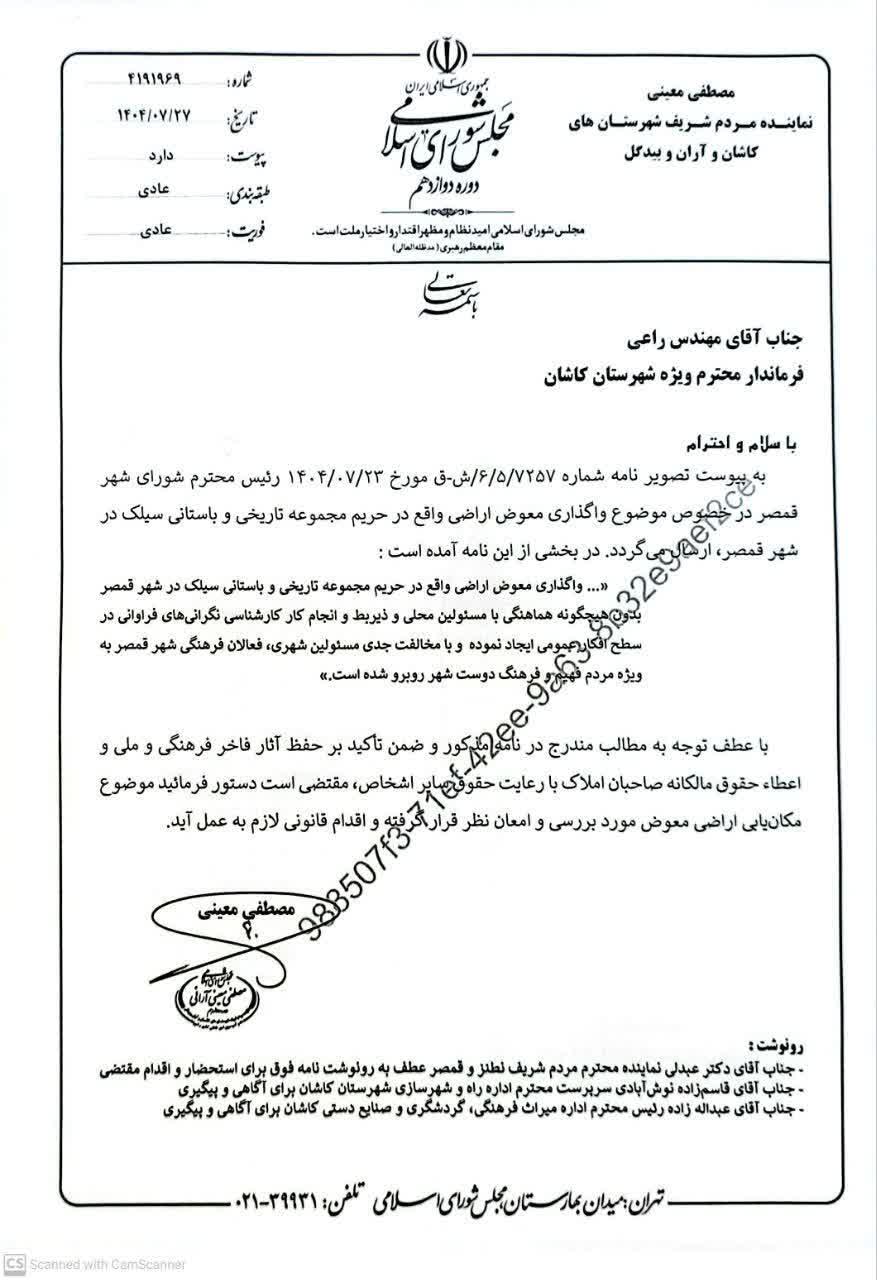 جمهوری اسلامی ایران
مجلس شورای اسلامی
دوره دوازدهم
مجلس شورای اسلامی امید نظام و مظهر اقتدار و اختیار ملت است.
مقام معظم رهبری (مدظله العالی)
مصطفی معینی
نماینده مردم شریف شهرستان های
کاشان و آران و بیدگل
شماره: ۴۱۹۱۹۶۹
تاریخ: ۱۴۰۴/۰۷/۲۷
پیوست: دارد
طبقه‌بندی: عادی
فوریت: عادی
باسمه تعالی
جناب آقای مهندس راعی
فرماندار محترم ویژه شهرستان کاشان
با سلام و احترام
به پیوست تصویر نامه شماره ۶/۵/۷۲۵۷/ش-ق مورخ ۱۴۰۴/۰۷/۲۳ رئیس محترم شورای شهر
قمصر در خصوص موضوع واگذاری معوض اراضی واقع در حریم مجموعه تاریخی و باستانی سیلک در
شهر قمصر، ارسال می‌گردد. در بخشی از این نامه آمده است :
«... واگذاری معوض اراضی واقع در حریم مجموعه تاریخی و باستانی سیلک در شهر قمصر
بدون هیچگونه هماهنگی با مسئولین محلی و ذیربط و انجام کار کارشناسی نگرانی‌های فراوانی در
سطح افکار عمومی ایجاد نموده و با مخالفت جدی مسئولین شهری، فعالان فرهنگی شهر قمصر به
ویژه مردم فهیم و فرهنگ دوست شهر روبرو شده است.»
با عطف توجه به مطالب مندرج در نامه مذکور و ضمن تأکید بر حفظ آثار فاخر فرهنگی و ملی و
اعطاء حقوق مالکانه صاحبان املاک با رعایت حقوق سایر اشخاص، مقتضی است دستور فرمائید موضوع
مکان‌یابی اراضی معوض مورد بررسی و امعان نظر قرار گرفته و اقدام قانونی لازم به عمل آید.
مصطفی معینی
مصطفی معینی آرانی
رونوشت :
- جناب آقای دکتر عبدلی نماینده محترم مردم شریف نطنز و قمصر عطف به رونوشت نامه فوق برای استحضار و اقدام مقتضی
- جناب آقای قاسم‌زاده نوش‌آبادی سرپرست محترم اداره راه و شهرسازی شهرستان کاشان برای آگاهی و پیگیری
- جناب آقای عبداله زاده رئیس محترم اداره میراث فرهنگی، گردشگری و صنایع دستی کاشان برای آگاهی و پیگیری
تهران: میدان بهارستان، مجلس شورای اسلامی تلفن: ۳۹۹۳۱-۰۲۱
CS Scanned with CamScanner